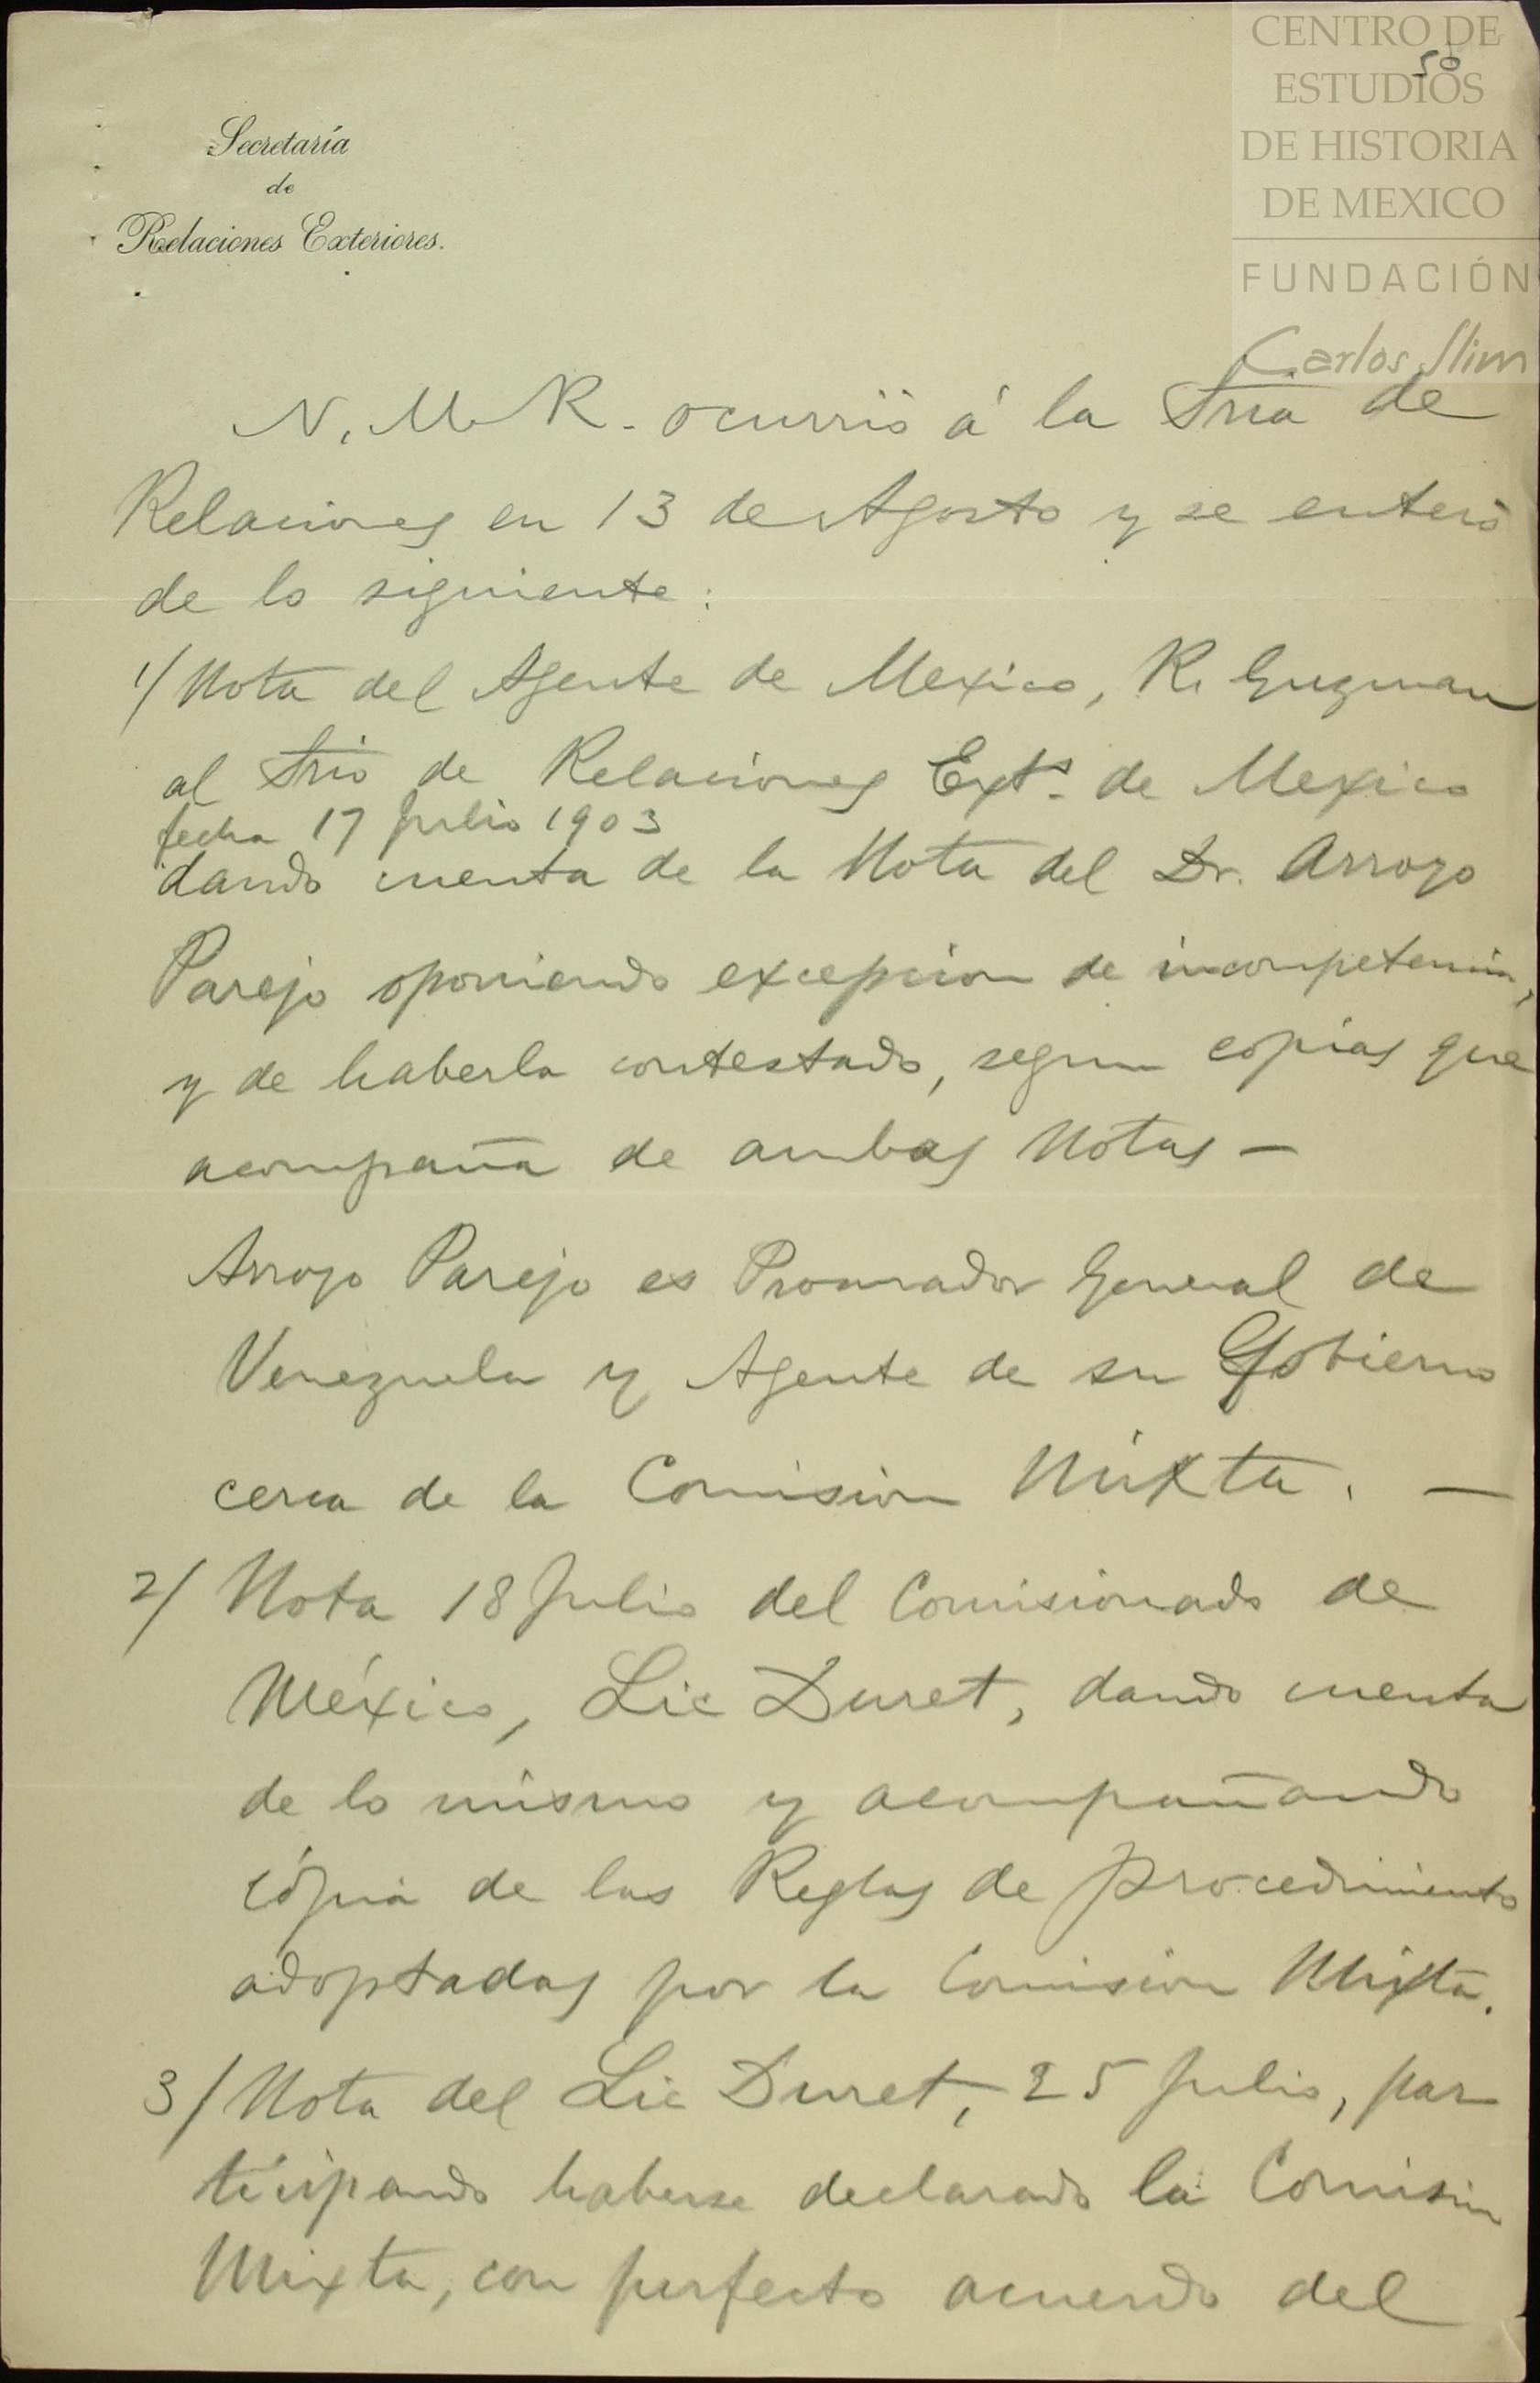 CENTRO DE
ESTUDIOS
DE HISTORIA
DE MEXICO
FUNDACIÓN
Carlos Slim
50
Secretaría
de
Relaciones Exteriores.
N. M. R. ocurrió á la Sría de
Relaciones en 13 de Agosto y se enteró
de lo siguiente:
1/ Nota del Agente de Mexico, R. Guzman
al Srio de Relaciones Exts. de Mexico
fecha 17 Julio 1903
dando cuenta de la Nota del Dr. Arroyo
Parejo oponiendo excepcion de incompetencia,
y de haberla contestado, segun copias que
acompaña de ambas Notas —
Arroyo Parejo es Procurador General de
Venezuela y Agente de su Gobierno
cerca de la Comision Mixta. —
2/ Nota 18 Julio del Comisionado de
México, Lic Duret, dando cuenta
de lo mismo y acompañando
cópia de las Reglas de procedimiento
adoptadas por la Comision Mixta.
3/ Nota del Lic Duret, 25 Julio, par
ticipando haberse declarado la Comision
Mixta, con perfecto acuerdo del